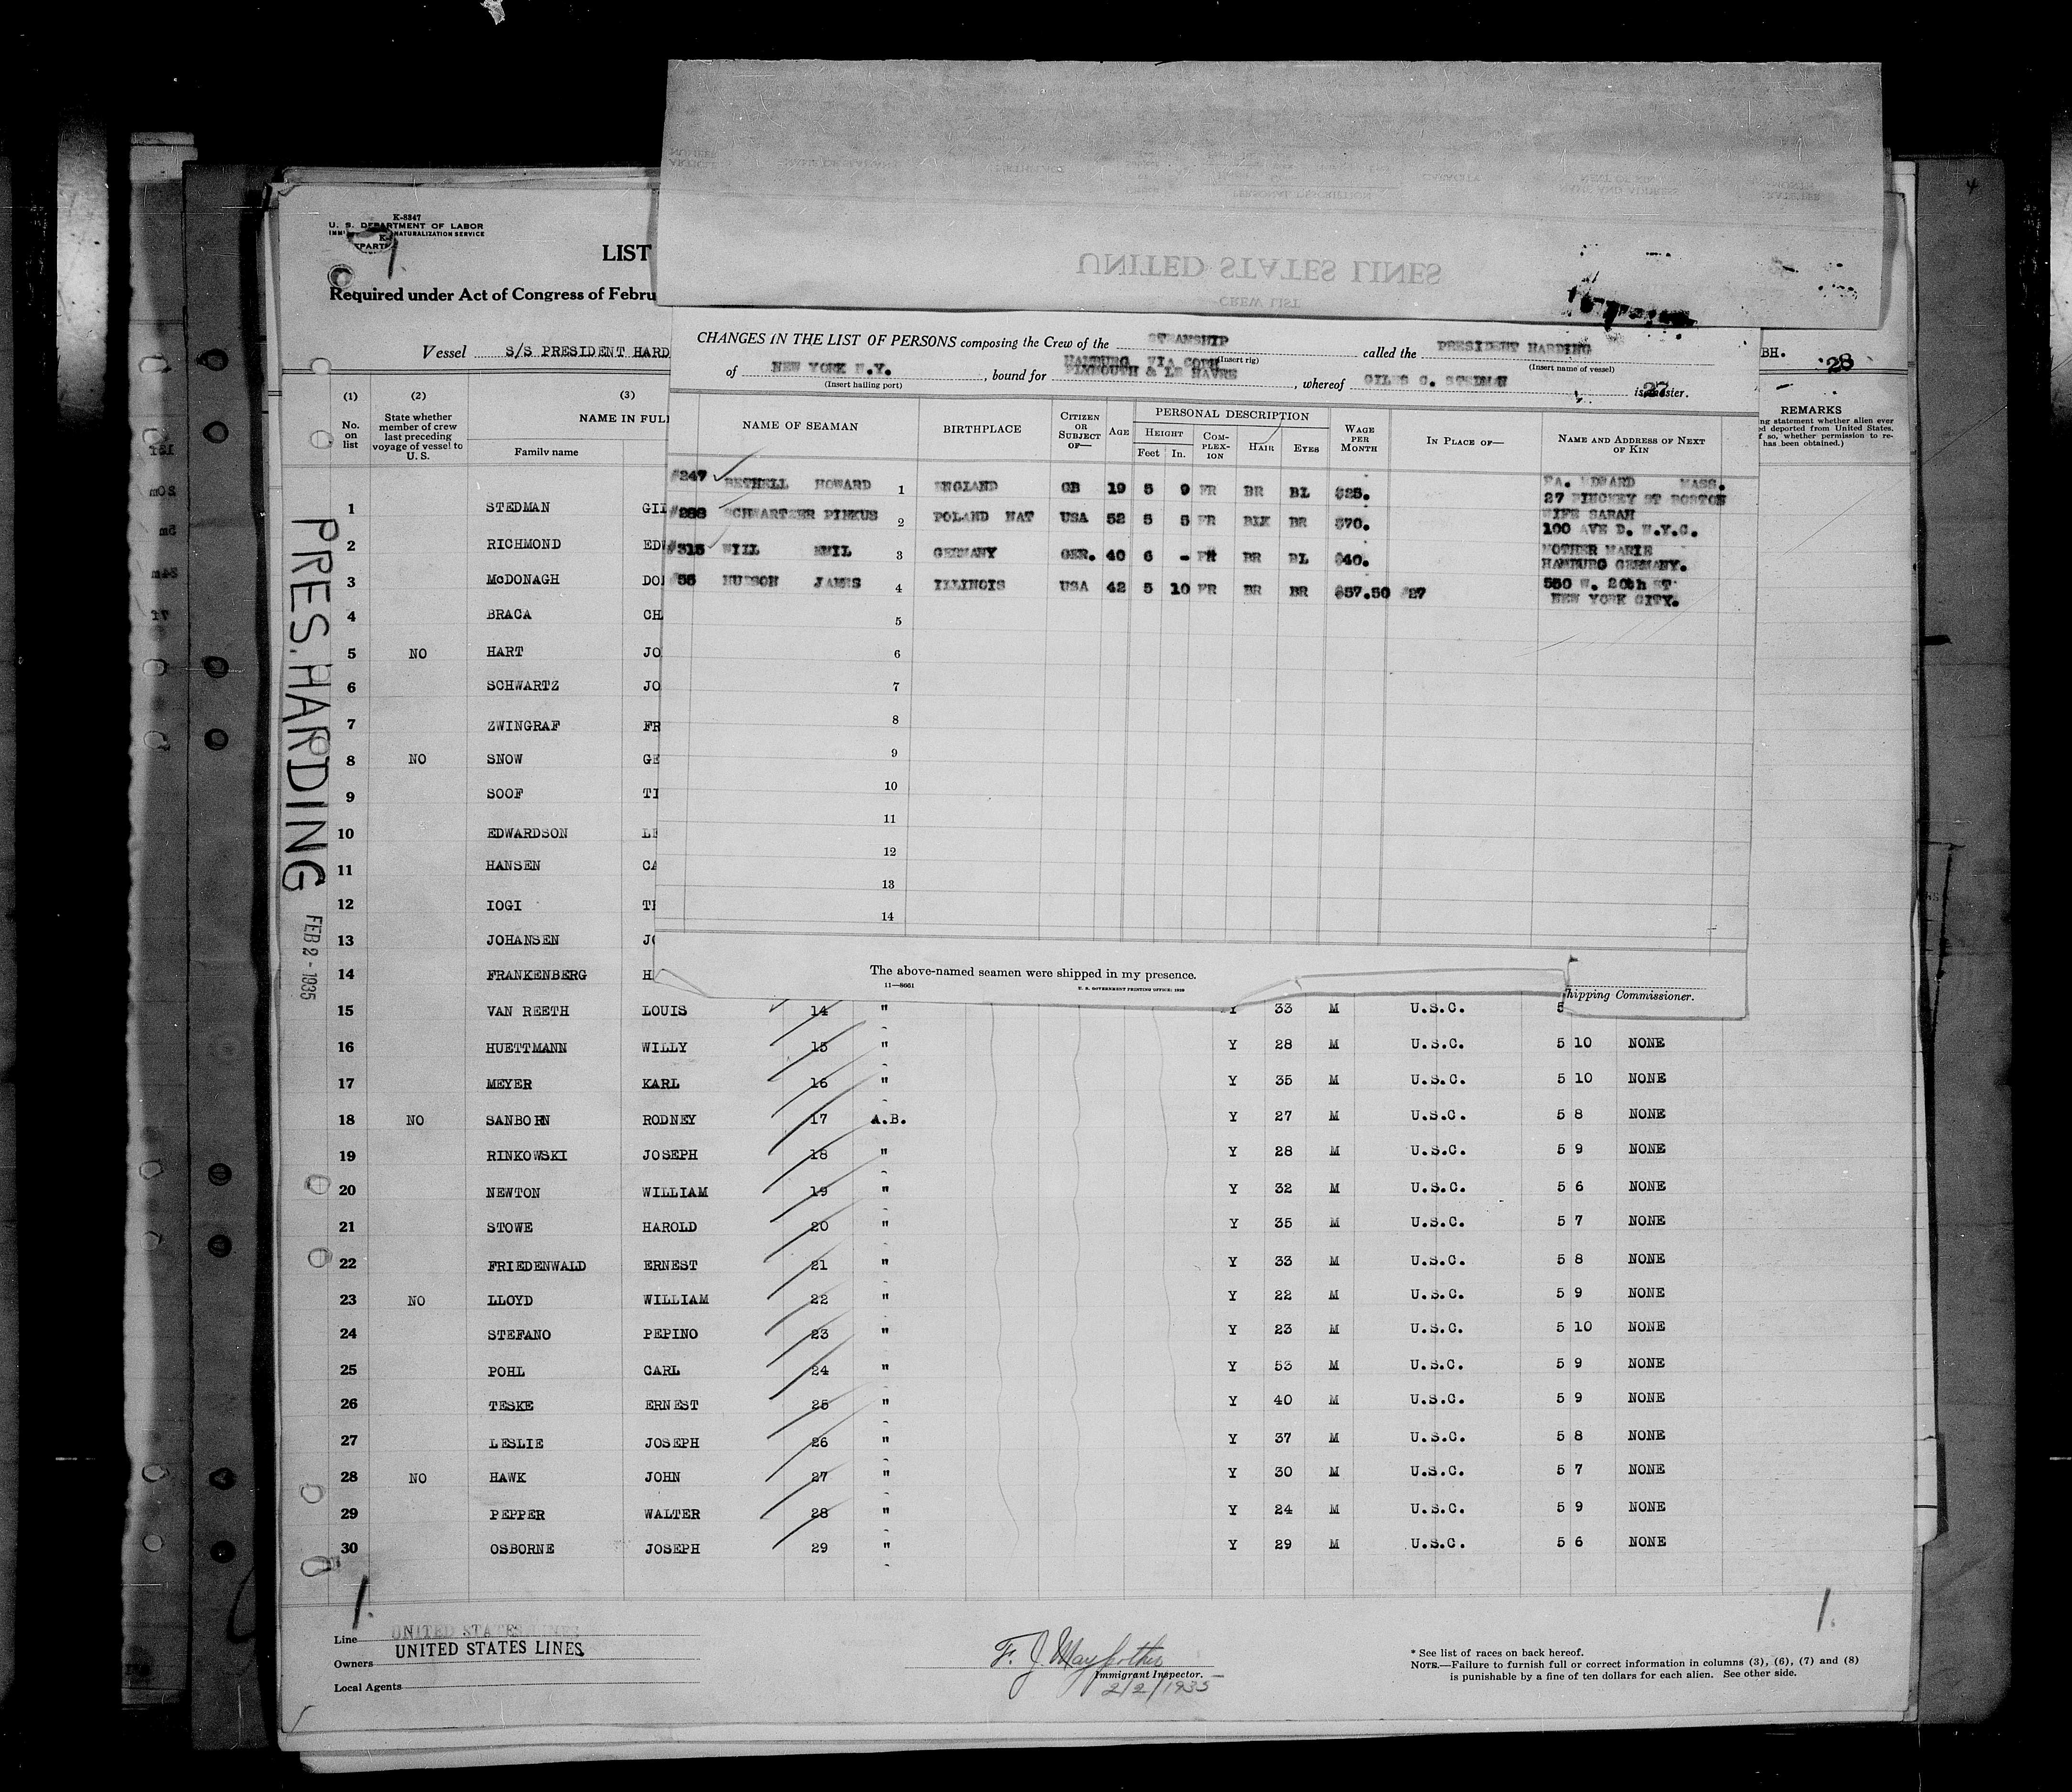 K-8347
U. S. DEPARTMENT OF LABOR
NATURALIZATION SERVICE
LIST
Required under Act of Congress of Febru
Vessel S/S PRESIDENT HARD
PRES. HARDING
FEB 2 - 1935
UNITED STATES LINES
CREW LIST
CHANGES IN THE LIST OF PERSONS composing the Crew of the STEAMSHIP called the PRESIDENT HARDING
(Insert rig) (Insert name of vessel)
of NEW YORK N.Y., bound for HAMBURG VIA COBH PLYMOUTH & LE HAVRE, whereof GILES C. STEDMAN is master.
(Insert hailing port)
BH.
28
27
REMARKS
ng statement whether alien ever
ed deported from United States.
f so, whether permission to re-
has been obtained.)
NAME OF SEAMAN BIRTHPLACE CITIZEN OR SUBJECT OF— AGE PERSONAL DESCRIPTION WAGE PER MONTH IN PLACE OF— NAME AND ADDRESS OF NEXT OF KIN
HEIGHT COMPLEXION HAIR EYES
Feet In.
#247 BETHELL HOWARD 1 ENGLAND GB 19 5 9 FR BR BL $25. FA. EDWARD MASS.
27 PINCKEY ST BOSTON
#288 SCHWARTZER PINKUS 2 POLAND NAT USA 52 5 5 FR BLK BR $70. WIFE SARAH
100 AVE D. N.Y.C.
#315 WILL EMIL 3 GERMANY GER. 40 6 - FR BR BL $40. MOTHER MARIE
HAMBURG GERMANY.
#55 HUDSON JAMES 4 ILLINOIS USA 42 5 10 FR BR BR $57.50 #27 550 W. 20th ST
NEW YORK CITY.
5
6
7
8
9
10
11
12
13
14
The above-named seamen were shipped in my presence.
11—8661
U. S. GOVERNMENT PRINTING OFFICE:
hipping Commissioner.
(1) (2) (3)
No. on list
State whether member of crew last preceding voyage of vessel to U. S.
NAME IN FULL
Family name
1 STEDMAN GIL
2 RICHMOND EDW
3 McDONAGH DO
4 BRACA CH
5 NO HART JO
6 SCHWARTZ JO
7 ZWINGRAF FR
8 NO SNOW GE
9 SOOF TI
10 EDWARDSON LE
11 HANSEN CA
12 IOGI
13 JOHANSEN JO
14 FRANKENBERG H
15 VAN REETH LOUIS 14 " Y 33 M U.S.C. 5
16 HUETTMANN WILLY 15 " Y 28 M U.S.C. 5 10 NONE
17 MEYER KARL 16 " Y 35 M U.S.C. 5 10 NONE
18 NO SANBORN RODNEY 17 A.B. Y 27 M U.S.C. 5 8 NONE
19 RINKOWSKI JOSEPH 18 " Y 28 M U.S.C. 5 9 NONE
20 NEWTON WILLIAM 19 " Y 32 M U.S.C. 5 6 NONE
21 STOWE HAROLD 20 " Y 35 M U.S.C. 5 7 NONE
22 FRIEDENWALD ERNEST 21 " Y 33 M U.S.C. 5 8 NONE
23 NO LLOYD WILLIAM 22 " Y 22 M U.S.C. 5 9 NONE
24 STEFANO PEPINO 23 " Y 23 M U.S.C. 5 10 NONE
25 POHL CARL 24 " Y 53 M U.S.C. 5 9 NONE
26 TESKE ERNEST 25 " Y 40 M U.S.C. 5 9 NONE
27 LESLIE JOSEPH 26 " Y 37 M U.S.C. 5 8 NONE
28 NO HAWK JOHN 27 " Y 30 M U.S.C. 5 7 NONE
29 PEPPER WALTER 28 " Y 24 M U.S.C. 5 9 NONE
30 OSBORNE JOSEPH 29 " Y 29 M U.S.C. 5 6 NONE
1. 1.
Line UNITED STATES LINES
Owners UNITED STATES LINES
Local Agents
F. J. Mayforther
Immigrant Inspector.
2/2/1935
* See list of races on back hereof.
NOTE.—Failure to furnish full or correct information in columns (3), (6), (7) and (8)
is punishable by a fine of ten dollars for each alien. See other side.